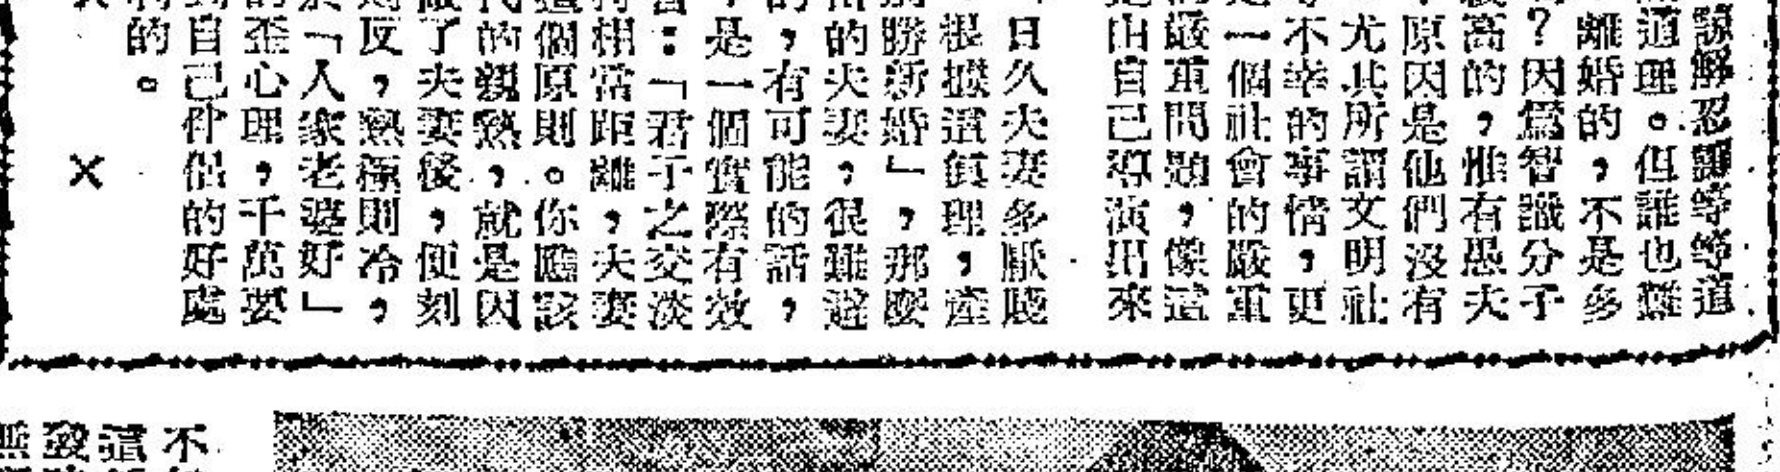 諒解忍讓等等道
道理。但誰也難
離婚的,不是多
?因爲智識分子
高的,惟有愚夫
原因是他們沒有
尤其所謂文明社
不幸的事情,更
一個社會的嚴重
嚴重問題,像這
由自己導演出來
日久夫妻多厭賤
根據這眞理,產
勝新婚」,那麼
的夫妻,很難避
,有可能的話,
是一個實際有效
:「君子之交淡
相當距離,夫妻
個原則。你應該
的親熱,就是因
了夫妻後,便刻
反,熱極則冷,
「人家老婆好」
歪心理,千萬要
自己伴侶的好處
的。
×
不
這
致
無